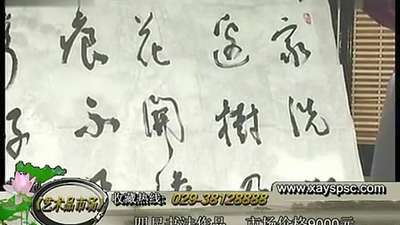 家洗
边樹
花開
痕不
艺术品市场
收藏热线: 029-38128888
www.xayspsc.com
四尺书法作品 市场价格9000元